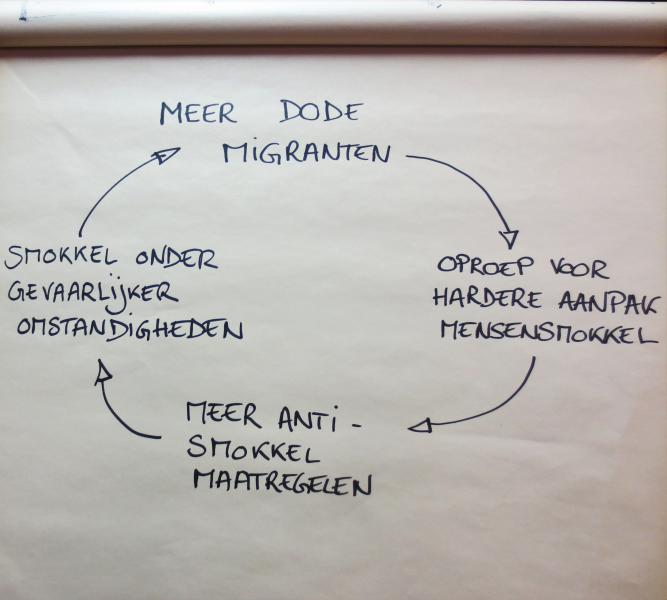 MEER DODE
MIGRANTEN
OPROEP VOOR
HARDERE AANPAK
MENSENSMOKKEL
MEER ANTI-
SMOKKEL
MAATREGELEN
SMOKKEL ONDER
GEVAARLIJKER
OMSTANDIGHEDEN